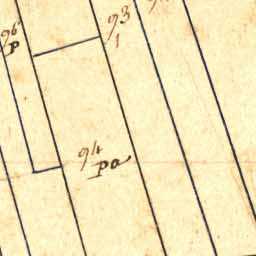 96
P
93
1
94
pa